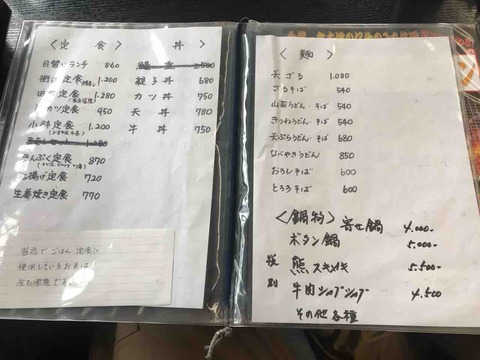 〈定食〉
日替りランチ 860
定食 1.200
定食 1.280
カツ定食 950
小丼定食 1.200
きんぷく定食 870
揚げ定食 720
生姜焼き定食 770
当店でごはん、定食に
使用しているお米は
丼
2,500
親子丼 680
カツ丼 750
天丼 780
牛丼 750
〈麺〉
天ざる 1.080
ざるそば 540
山菜うどん・そば 540
きつねうどん・そば 540
天ぷらうどん・そば 680
なべやきうどん 850
おろしそば 600
とろろそば 600
〈鍋物〉寄せ鍋 4,000-
ボタン鍋 5,000-
税 熊スキヤキ 5.500-
別 牛肉シャブシャブ 4,500
その他各種